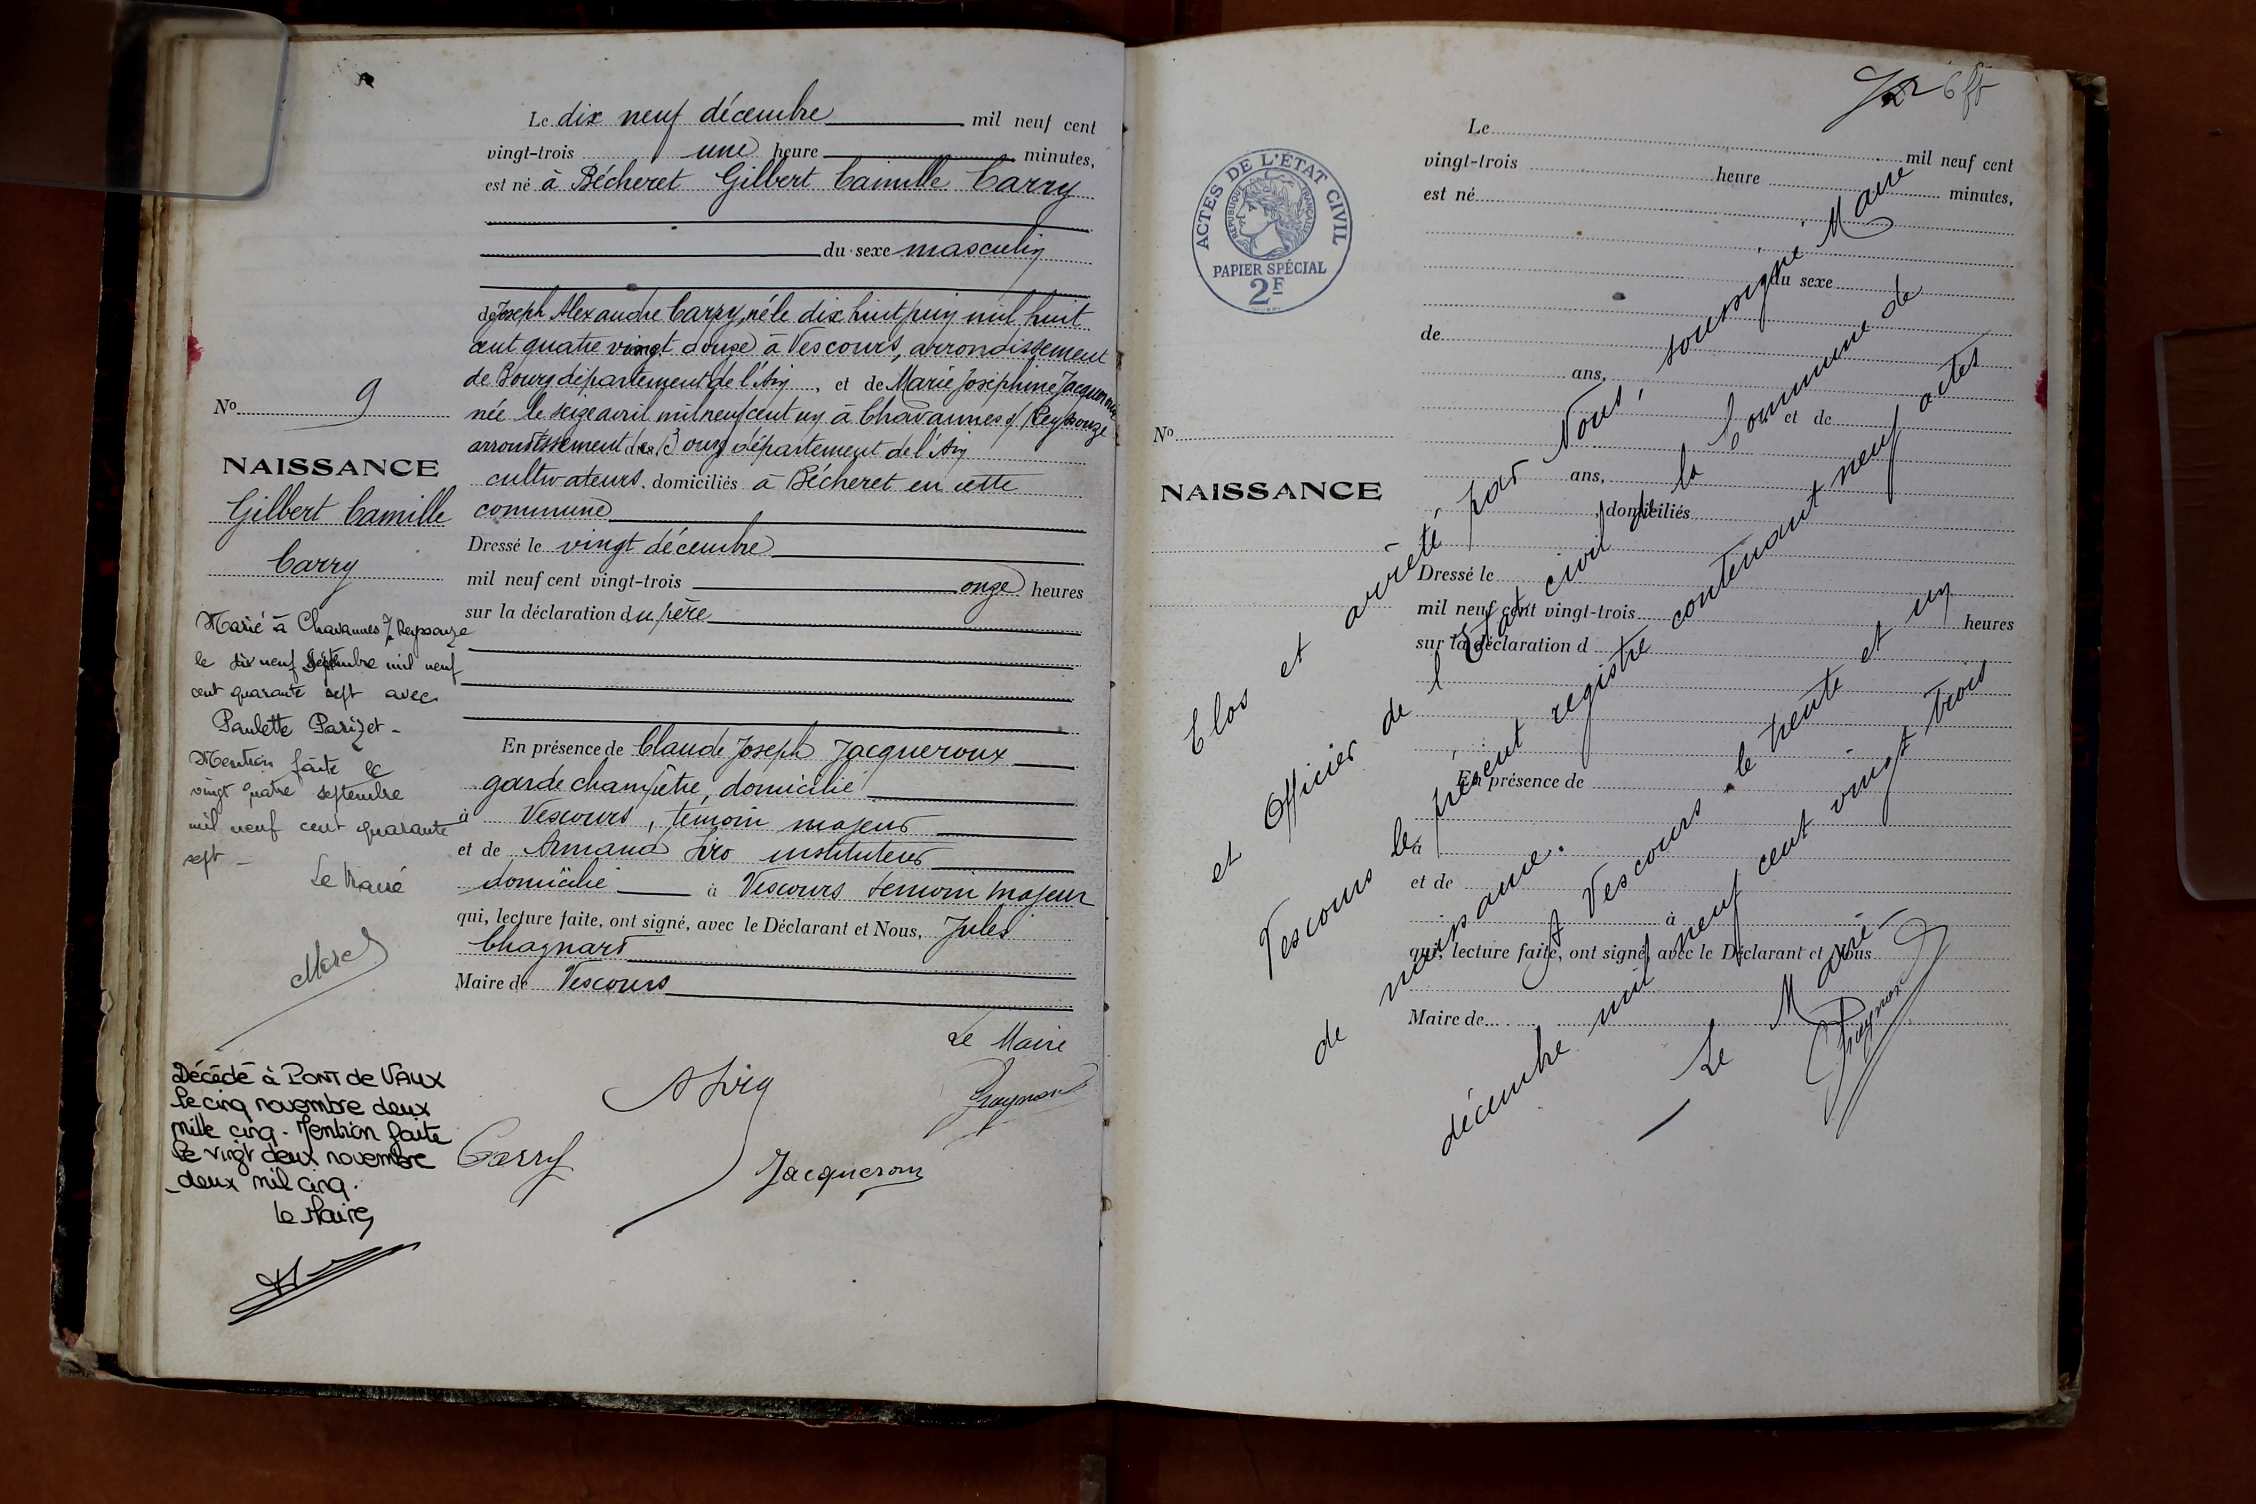 Le dix neuf décembre mil neuf cent
vingt-trois une heure minutes,
est né à Bécheret Gilbert Camille Carry
du sexe masculin
de Joseph Alexandre Carry, né le dix huit juin mil huit
cent quatre vingt douze à Vescours, arrondissement
de Bourg département de l'Ain, et de Marie Joséphine Jacqueroux
née le seize avril mil neuf cent un à Chavannes s/ Reyssouze
arrondissement de Bourg département de l'Ain
cultivateurs, domiciliés à Bécheret en cette
commune
Dressé le vingt décembre
mil neuf cent vingt-trois onze heures
sur la déclaration du père
En présence de Claude Joseph Jacqueroux
garde champêtre, domicilié
à Vescours, témoin majeur
et de Armand Siro instituteur
domicilié à Vescours témoin majeur
qui, lecture faite, ont signé, avec le Déclarant et Nous, Jules
Chagnard
Maire de Vescours
Le Maire
Carry
Jacqueroux
No 9
NAISSANCE
Gilbert Camille
Carry
Marié à Chavannes s/ Reyssouze
le dix neuf septembre mil neuf
cent quarante sept avec
Paulette Parizet -
Mention faite le
vingt quatre septembre
mil neuf cent quarante
sept -
Le Maire
Décédé à PONT de VAUX
le cinq novembre deux
mille cinq. Mention faite
le vingt deux novembre
deux mil cinq.
Le Maire,
ACTES DE L'ÉTAT CIVIL
RÉPUBLIQUE FRANÇAISE
PAPIER SPÉCIAL
2F
No
NAISSANCE
Le mil neuf cent
vingt-trois heure minutes,
est né
du sexe
de
ans,
et de
ans,
, domiciliés
Dressé le
mil neuf cent vingt-trois heures
sur la déclaration d
En présence de
à
et de
à
qui, lecture faite, ont signé, avec le Déclarant et Nous
Maire de
Clos et arrêté par Nous, soussigné Maire
et Officier de l'Etat civil de la Commune de
Vescours le présent registre contenant neuf actes
de naissance.
A Vescours le trente et un
décembre mil neuf cent vingt trois
Le Maire